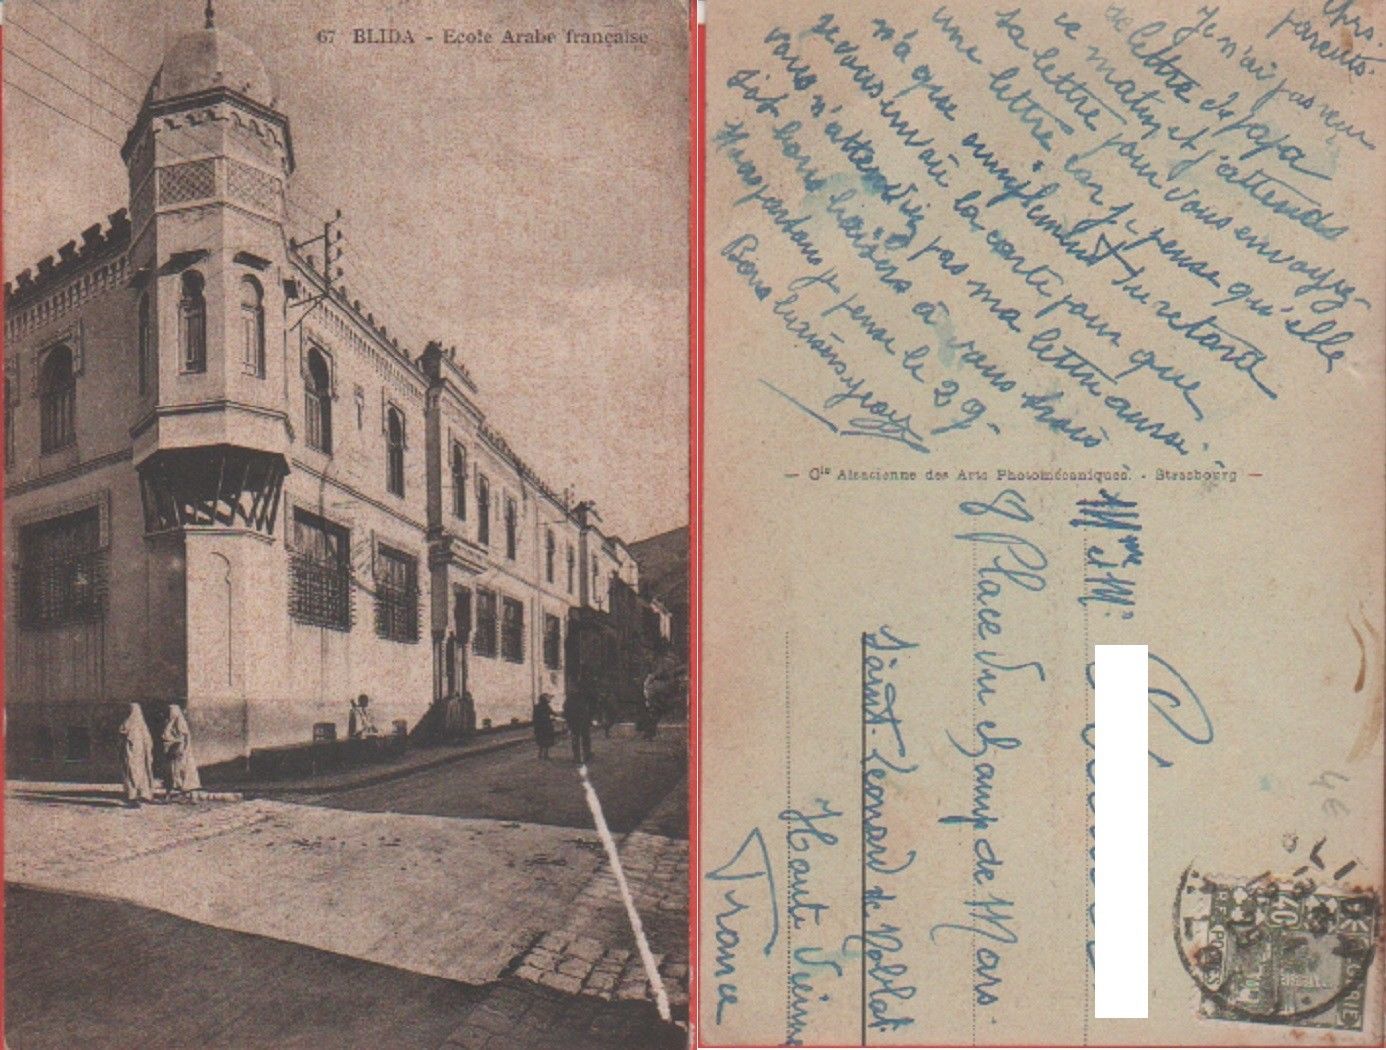 67 BLIDA - Ecole Arabe française
Chrs. parents.
Je n'ai pas reçu
de lettre de papa
ce matin et j'attends
sa lettre pour vous envoyez
une lettre car je pense qu'elle
n'a que simplement du retard
je vous envoie la carte pour que
vous n'attendiez pas ma lettre aussi.
bons baisers à vous trois
je pense le 29.
Bons baisers
— Cie Alsacienne des Arts Photomécaniques. - Strasbourg —
Mme et M.
8 Place du champ de Mars.
Saint. Léonard de Noblat
Haute Vienne
France
4€
POSTES